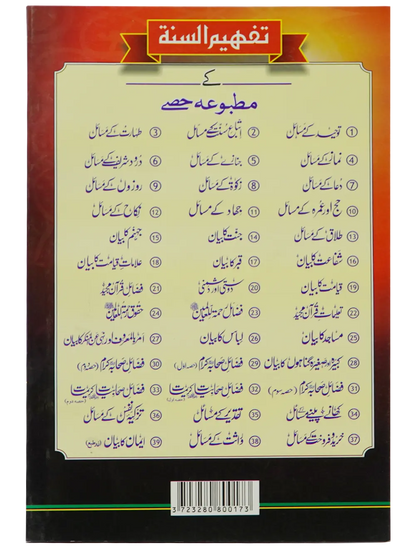 تفہیم السنۃ
کے
مطبوعہ حصے
1 توحید کے مسائل 2 اتباع سنت کے مسائل 3 طہارت کے مسائل
4 نماز کے مسائل 5 جنازے کے مسائل 6 درود شریف کے مسائل
7 دعا کے مسائل 8 زکوٰۃ کے مسائل 9 روزوں کے مسائل
10 حج اور عمرہ کے مسائل 11 جہاد کے مسائل 12 نکاح کے مسائل
13 طلاق کے مسائل 14 جنت کا بیان 15 جہنم کا بیان
16 شفاعت کا بیان 17 قبر کا بیان 18 علامات قیامت کا بیان
19 قیامت کا بیان 20 دوستی اور دشمنی 21 فضائل قرآن مجید
22 تعلیمات قرآن مجید 23 فضائل رحمۃ للعالمین ﷺ 24 حقوق رحمۃ للعالمین ﷺ
25 مساجد کا بیان 26 لباس کا بیان 27 امر بالمعروف اور نہی عن المنکر کا بیان
28 کبیرہ و صغیرہ گناہوں کا بیان 29 فضائل صحابہ کرام (حصہ اول) 30 فضائل صحابہ کرام (حصہ دوم)
31 فضائل صحابہ کرام (حصہ سوم) 32 فضائل صحابیات (حصہ اول) 33 فضائل صحابیات (حصہ دوم)
34 کھانے پینے کے مسائل 35 تقدیر کے مسائل 36 تزکیہ نفس کے مسائل
37 خرید و فروخت کے مسائل 38 وراثت کے مسائل 39 ایمان کا بیان (زیر طبع)
3 723280 800173